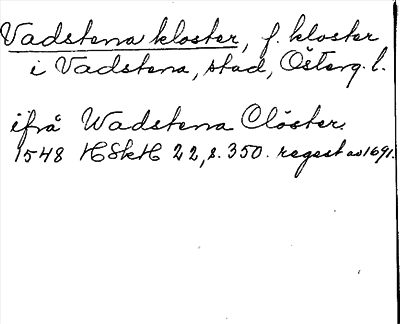 Vadstena kloster, f. kloster
i Vadstena, stad, Österg. l.
ifrå Wadstena Clöster.
1548 HSkH 22, s. 350. regest av 1691.